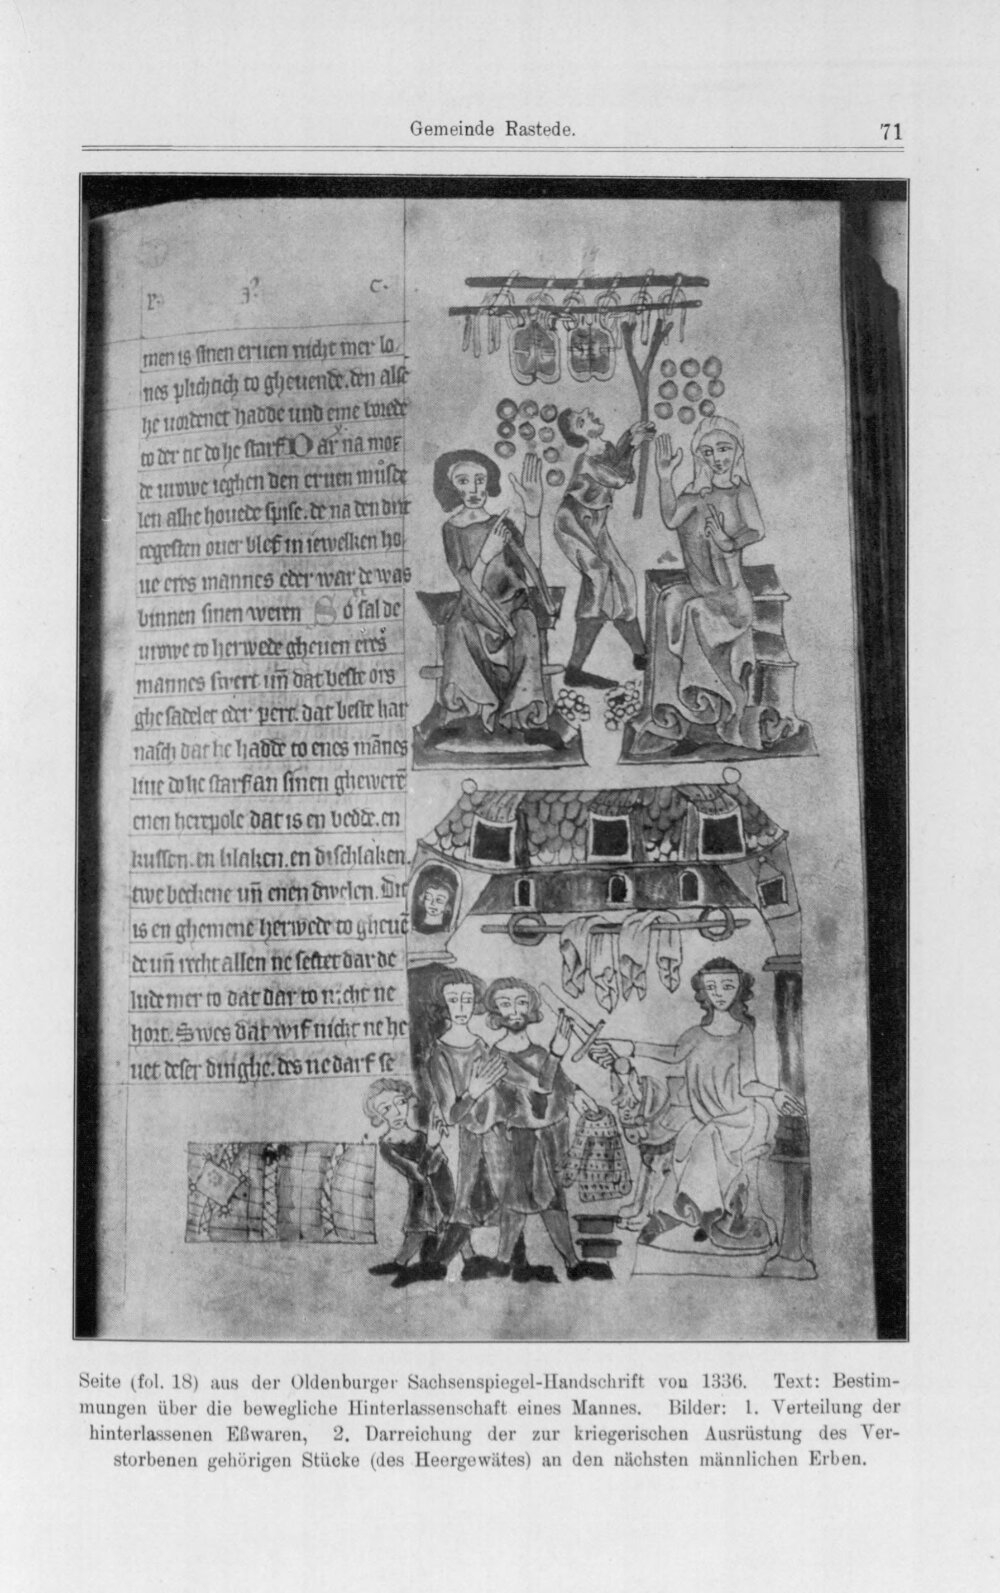 Gemeinde Rastede.
71
P. J. C.
men is sinen eruen nicht mer lo
nes plichtich to gheuende. den alse
he uordenet hadde und eine borede
to der tit do he starf Dar na mot
de urowe ieghen den eruen musde
len alle houede spise. de na den drit
tegesten ouer blef in iewelken ho
ue eres mannes eder war he was
binnen sinen weren So sal de
urowe to herwede gheuen eres
mannes swert uñ dat beste ors
ghesadelet eder pert. dat beste har
nasch dat he hadde to enes mānes
liue do he starf an sinen ghewerē
enen herepole dat is en bedde. en
kussen. en blaken. en dischlaken.
twe beckene uñ enen dwelen. Dit
is en ghemene herwede to gheuē
de uñ recht allen ne settet dar de
lude mer to dat dar to nicht ne
hort. Swes dat wif nicht ne he
uet deser dinghe. des ne darf se
Seite (fol. 18) aus der Oldenburger Sachsenspiegel-Handschrift von 1336. Text: Bestim-
mungen über die bewegliche Hinterlassenschaft eines Mannes. Bilder: 1. Verteilung der
hinterlassenen Eßwaren, 2. Darreichung der zur kriegerischen Ausrüstung des Ver-
storbenen gehörigen Stücke (des Heergewätes) an den nächsten männlichen Erben.